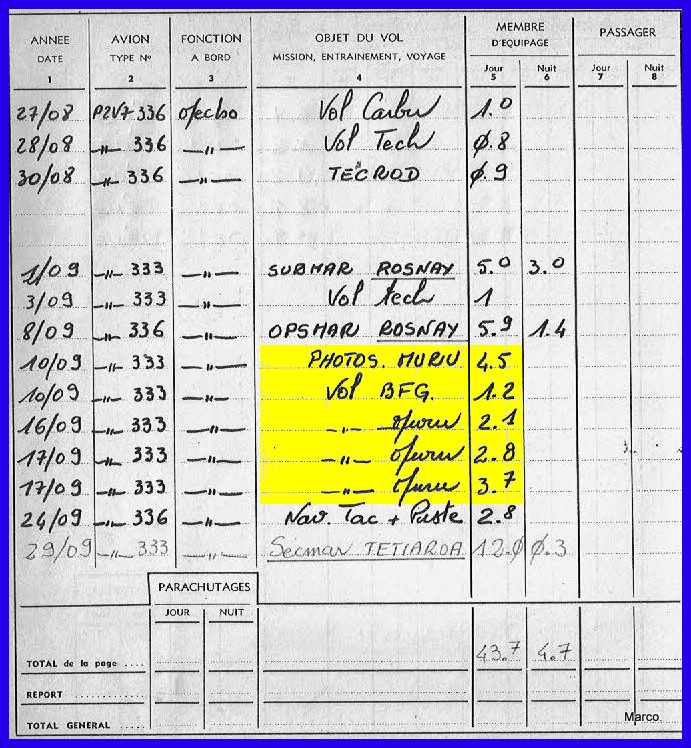 ANNEE AVION FONCTION OBJET DU VOL MEMBRE D'EQUIPAGE PASSAGER
DATE TYPE No A BORD MISSION, ENTRAINEMENT, VOYAGE Jour Nuit Jour Nuit
1 2 3 4 5 6 7 8
27/08 P2V7 336 Vol Carbu 1.0
28/08 -"- 336 -"- Vol Tech 0.8
30/08 -"- 336 -"- 0.9
1/09 -"- 333 -"- SUBMAR ROSNAY 5.0 3.0
3/09 -"- 333 -"- Vol tech 1
8/09 -"- 336 -"- OPSMAR ROSNAY 5.9 1.4
10/09 -"- 333 -"- PHOTOS. MURU 4.5
10/09 -"- 333 -"- Vol BFG. 1.2
16/09 -"- 333 -"- -"- 2.1
17/09 -"- 333 -"- -"- 2.8
17/09 -"- 333 -"- -"- 3.7
24/09 -"- 336 -"- Nav. Tac + Piste 2.8
29/09 -"- 333 -"- Secmar TETIAROA 12.0 0.3
PARACHUTAGES
JOUR NUIT
TOTAL de la page .... 43.7 4.7
REPORT ............
TOTAL GENERAL ....
Marco.